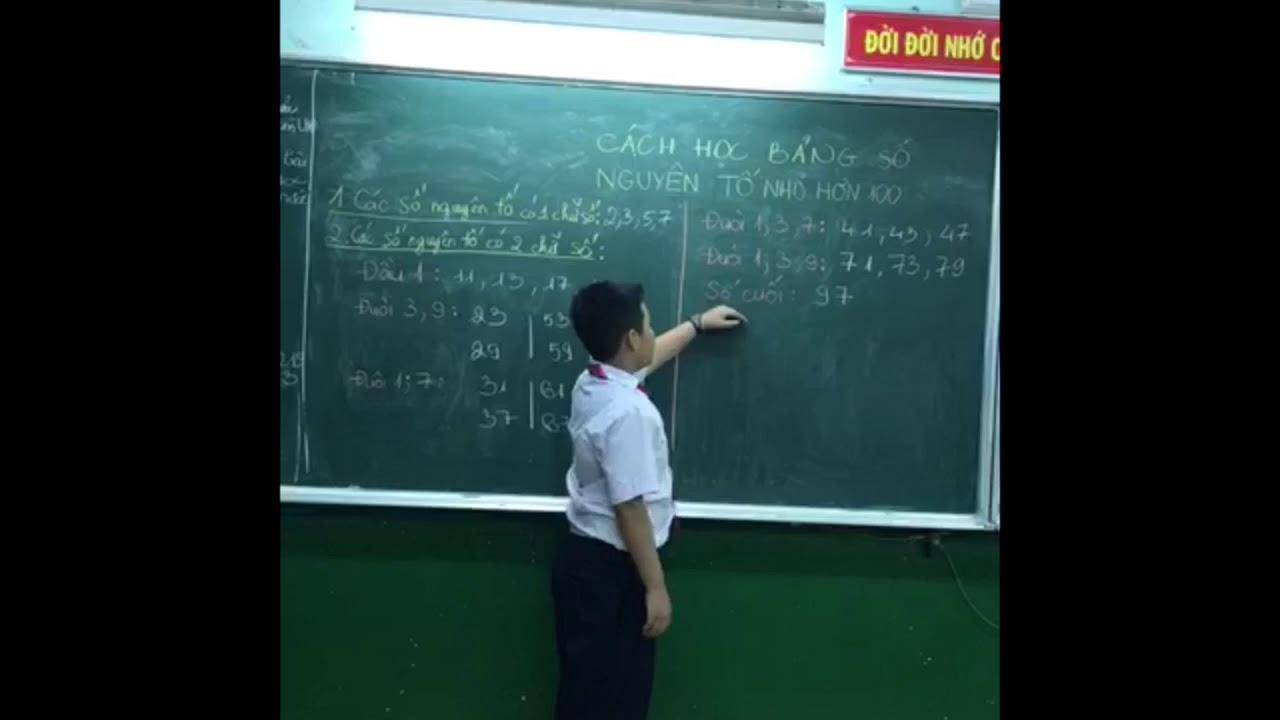 ĐỜI ĐỜI NHỚ
CÁCH HỌC BẢNG SỐ
NGUYÊN TỐ NHỎ HƠN 100
1. Các số nguyên tố có 1 chữ số: 2,3,5,7
2. Các số nguyên tố có 2 chữ số:
Đầu 1: 11, 13, 17
Đuôi 3, 9: 23 53
29 59
Đuôi 1; 7: 31 61
37 67
Đuôi 1; 3; 7: 41, 43, 47
Đuôi 1; 3; 9: 71, 73, 79
Số cuối: 97